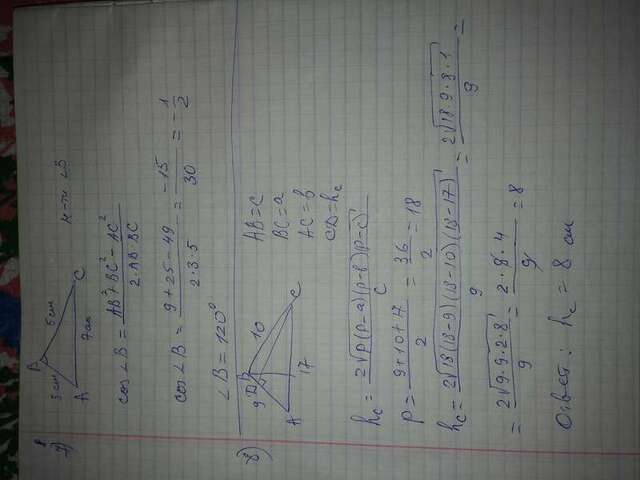 7)
B
3 см 5 см
A C
7 см
н-ти ∠B
cos∠B = (AB² + BC² − AC²) / (2·AB·BC)
cos∠B = (9 + 25 − 49) / (2·3·5) = −15/30 = −1/2
∠B = 120°
8)
B
9 D 10
A C
17
AB = c
BC = a
AC = b
CD = h_c
h_c = 2√(p(p−a)(p−b)(p−c)) / c
P = (9+10+17)/2 = 36/2 = 18
h_c = 2√(18(18−9)(18−10)(18−17)) / 9 = 2√(18·9·8·1) / 9 =
= 2√(9·9·2·8) / 9 = (2·9·4)/9 = 8
Ответ: h_c = 8 см